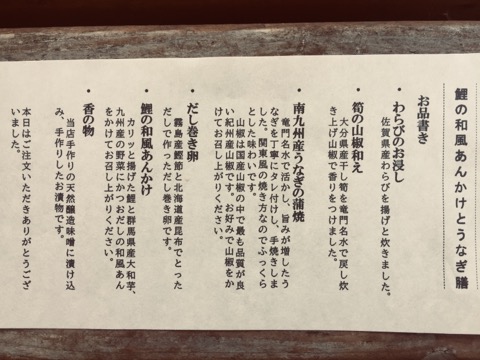 鯉の和風あんかけとうなぎ膳
お品書き
・わらびのお浸し
佐賀県産わらびを揚げと炊きました。
・筍の山椒和え
大分県産干し筍を竜門名水で戻し炊
き上げ山椒で香りをつけました。
・南九州産うなぎの蒲焼
竜門名水で活かし、旨みが増したう
なぎを丁寧にタレ付けし、手焼きしま
した。関東風の焼き方なのでふっくら
とした味わいです。
山椒は国産山椒の中で最も品質が良
い紀州産山椒です。お好みで山椒をか
けてお召し上がりください。
・だし巻き卵
霧島産鰹節と北海道産昆布でとった
だしで作っただし巻き卵です。
・鯉の和風あんかけ
カリッと揚げた鯉と群馬県産大和芋、
九州産の野菜にかつおだしの和風あん
をかけてお召し上がりください。
・香の物
当店手作りの天然醸造味噌に漬け込
み、手作りしたお漬物です。
本日はご注文いただきありがとうござ
いました。